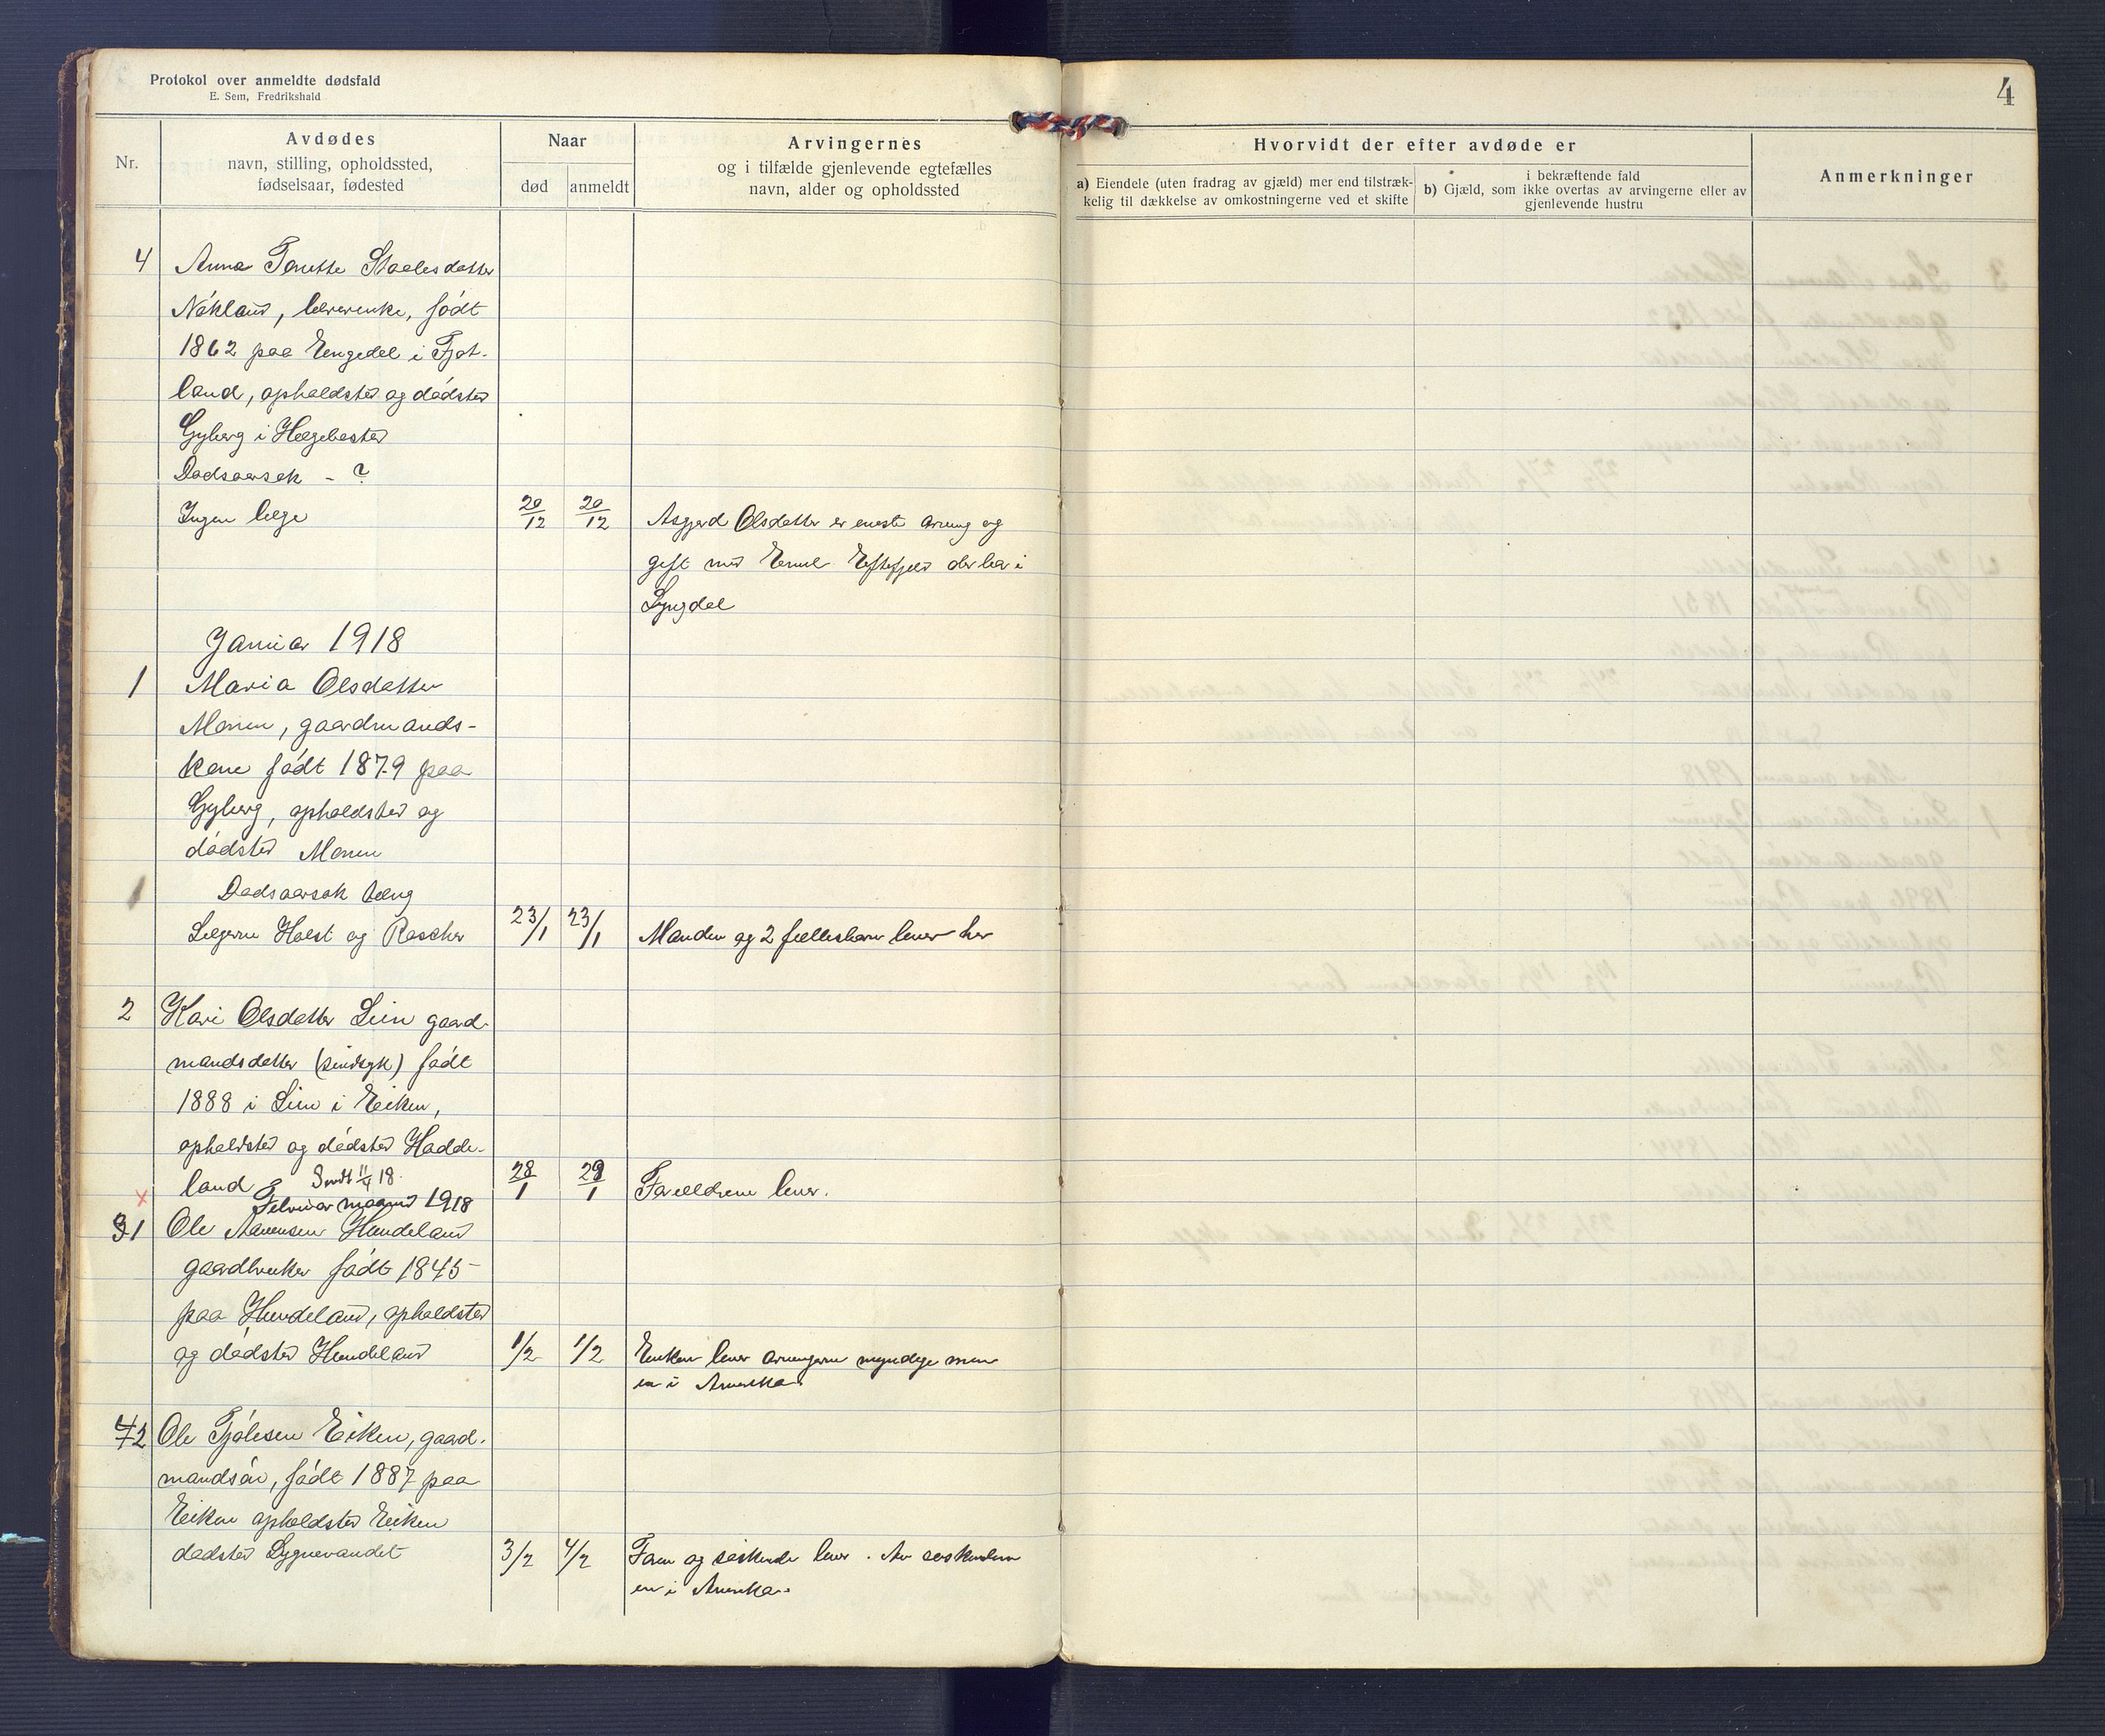 Protokol over anmeldte dødsfald
E. Sem, Fredrikshald
4
Nr.
Avdødes
navn, stilling, opholdssted,
fødselsaar, fødested
Naar
død
anmeldt
Arvingernes
og i tilfælde gjenlevende egtefælles
navn, alder og opholdssted
Hvorvidt der efter avdøde er
a) Eiendele (uten fradrag av gjæld) mer end tilstræk-
kelig til dækkelse av omkostningerne ved et skifte
i bekræftende fald
b) Gjæld, som ikke overtas av arvingerne eller av
gjenlevende hustru
Anmerkninger
4 Anna Staalesdatter
født
1862 paa Engedal i Fjot-
land, opholdsted og dødsted
Gyberg i Hægebostad
Dødsaarsak - ?
Ingen læge 20/12 20/12 Asgjerd Olsdatter er eneste arving og
gift med Emil Eftefjeld der bor i
Lyngdal
Januar 1918
1 Maria Olsdatter
Monen, gaardmands-
kone født 1879 paa
Gyberg, opholdsted og
dødsted Monen
Dødsaarsak
Lægerne Holst og Roscher 23/1 23/1 Manden og 2 fællesbarn lever her
2 Kari Olsdatter Lien gaard-
mandsdatter (sindsyk) født
1888 i Lien i Eiken,
opholdsted og dødsted Hadde-
land Sendt 11/4 18. 28/1 29/1 Forældrene lever.
x Februar maaned 1918
1 Ole Hundeland
gaardbruker født 1845
paa Hundeland, opholdsted
og dødsted Hundeland 1/2 1/2 Enken lever arvingerne myndige men
en i Amerika.
2 Ole Tjølesen Eiken, gaard-
mandsøn, født 1887 paa
Eiken opholdsted Eiken
dødsted Lygnevandet 3/2 4/2 Faren og søskende lever. Av søskendene
en i Amerika.